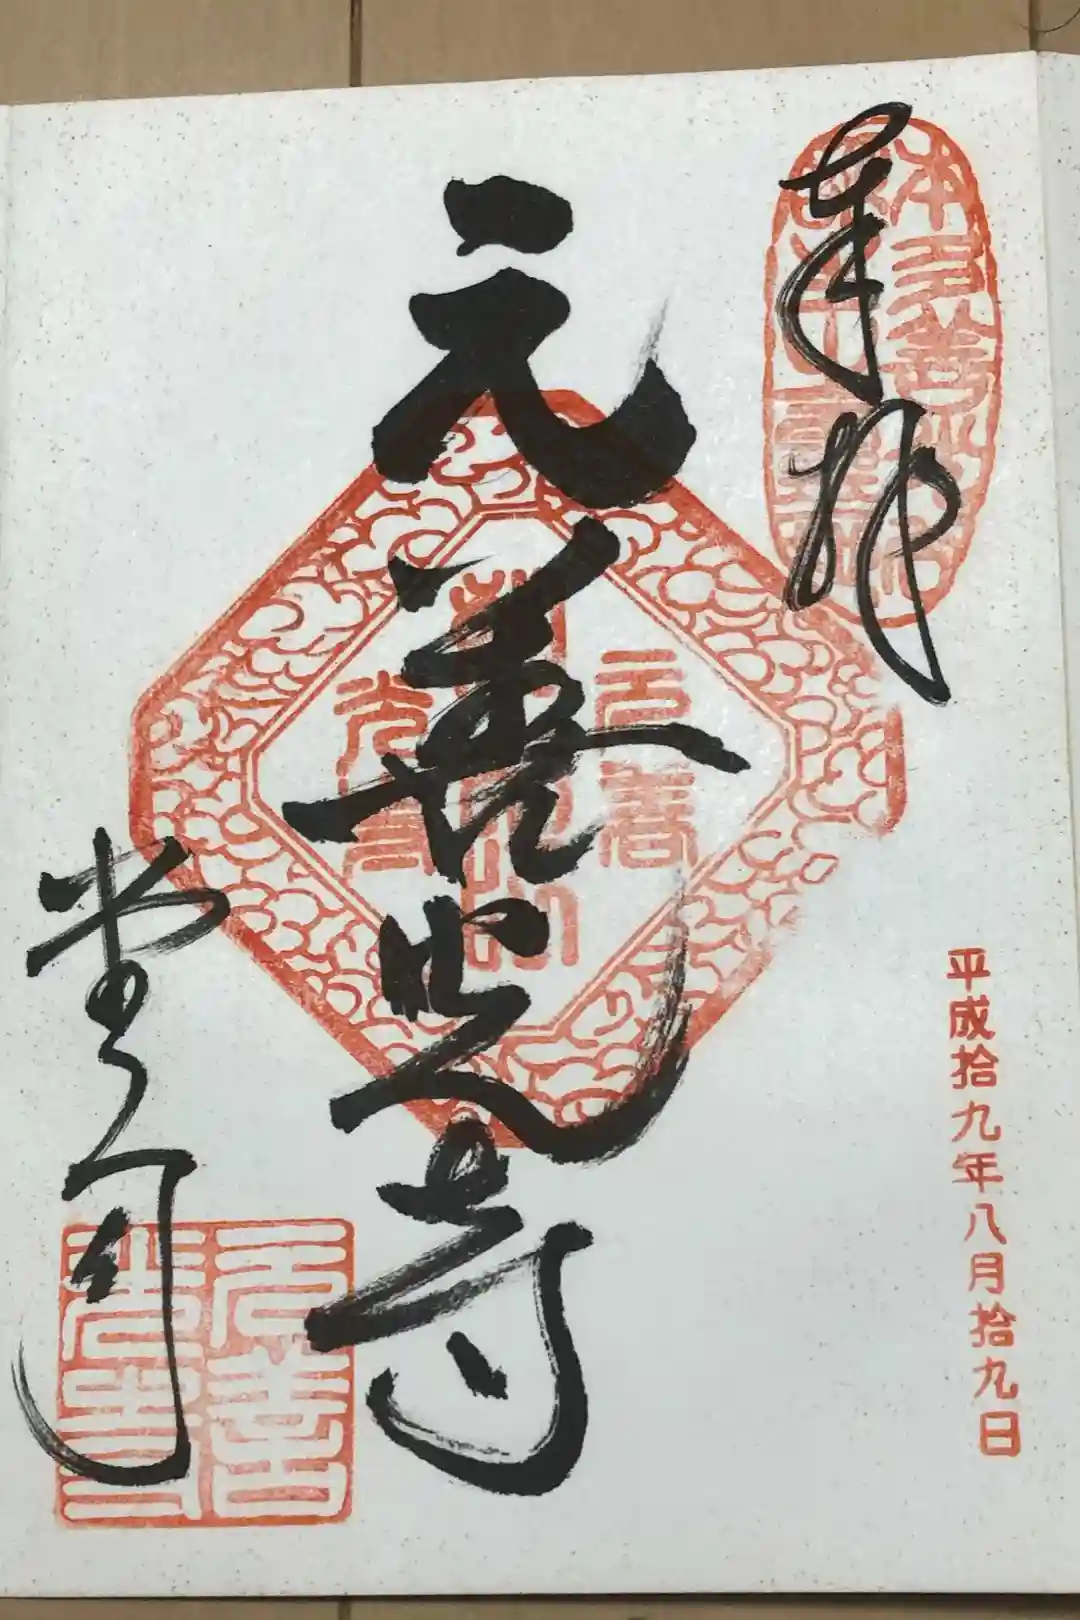 奉拝
平成拾九年八月拾九日
元善光寺
元善
光寺
堂司
元善
光寺